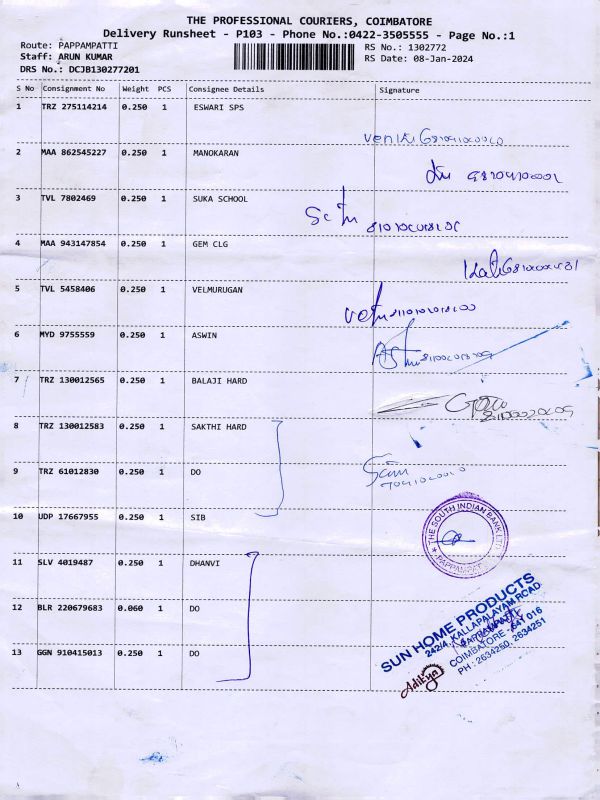 THE PROFESSIONAL COURIERS, COIMBATORE
Delivery Runsheet - P103 - Phone No.:0422-3505555 - Page No.:1
Route: PAPPAMPATTI
RS No.: 1302772
Staff: ARUN KUMAR
RS Date: 08-Jan-2024
DRS No.: DCJB130277201
S No Consignment No Weight PCS Consignee Details Signature
1 TRZ 275114214 0.250 1 ESWARI SPS
2 MAA 862545227 0.250 1 MANOKARAN
3 TVL 7802469 0.250 1 SUKA SCHOOL
4 MAA 943147854 0.250 1 GEM CLG
5 TVL 5458406 0.250 1 VELMURUGAN
6 MYD 9755559 0.250 1 ASWIN
7 TRZ 130012565 0.250 1 BALAJI HARD
8 TRZ 130012583 0.250 1 SAKTHI HARD
9 TRZ 61012830 0.250 1 DO
10 UDP 17667955 0.250 1 SIB
THE SOUTH INDIAN BANK LTD.
11 SLV 4019487 0.250 1 DHANVI
12 BLR 220679683 0.060 1 DO
13 GGN 910415013 0.250 1 DO
SUN HOME PRODUCTS
242/4, KALLAPALAYAM ROAD
COIMBATORE - 641 016
PH : 2634250, 2634251
Aditya